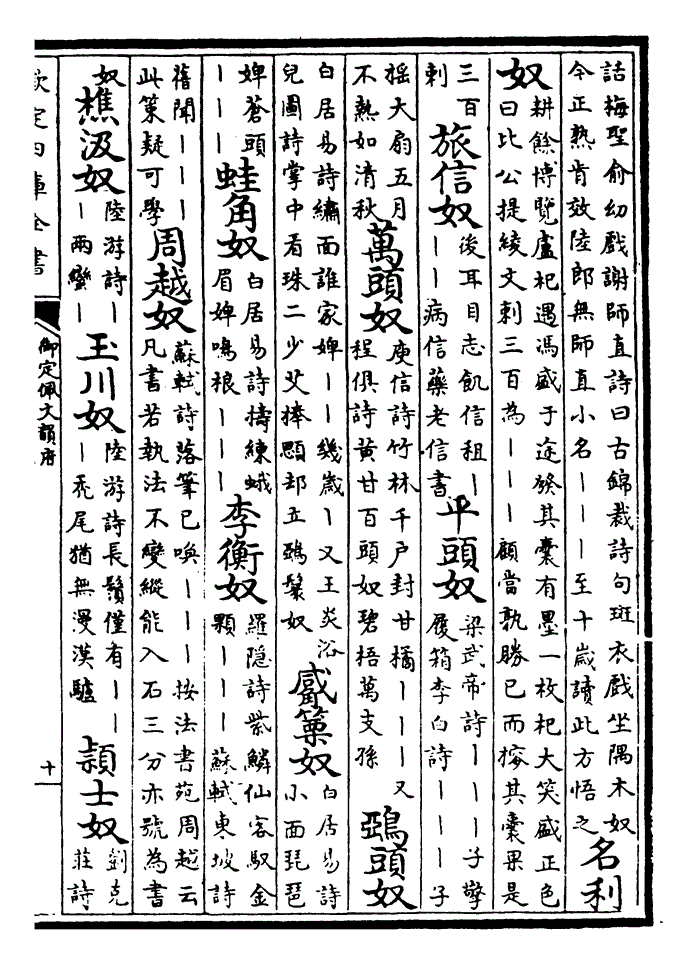 話梅聖俞幼戲謝師直詩曰古錦裁詩句斑衣戲坐隅木奴
今正熟肯效陸郎無師直小名丨丨丨至十歲讀此方悟之
名利
奴
耕餘博覽盧杞遇馮盛于途發其囊有墨一枚杞大笑盛正色
曰比公提綾文刺三百為丨丨丨顧當孰勝已而搜其囊果是
三百
刺
旅信奴
後耳目志飢信租丨
丨丨病信藥老信書
平頭奴
梁武帝詩丨丨丨子擎
履箱李白詩丨丨丨子
搖大扇五月
不熱如清秋
萬頭奴
庾信詩竹林千户封甘橘丨丨丨又
程俱詩黄甘百頭奴碧梧萬支孫
鵶頭奴
白居易詩繡面誰家婢丨丨幾歲丨又王炎浴
兒圖詩掌中看珠二少艾捧顋却立鵶鬟奴
觱篥奴
白居易詩
小面琵琶
婢蒼頭
丨丨丨
蛙角奴
白居易詩擣練蛾
眉婢鳴榔丨丨丨
李衡奴
羅隱詩紫鱗仙客馭金
顆丨丨丨蘇軾東坡詩
舊聞丨丨丨
此策疑可學
周越奴
蘇軾詩落筆已喚丨丨丨按法書苑周越云
凡書若執法不變縱能入石三分亦號為書
奴
樵汲奴
陸游詩丨
丨兩蠻丨
玉川奴
陸游詩長鬚僅有丨丨
丨禿尾猶無漫漢驢
潁士奴
劉克
莊詩
欽定四庫全書
御定佩文韻府
十